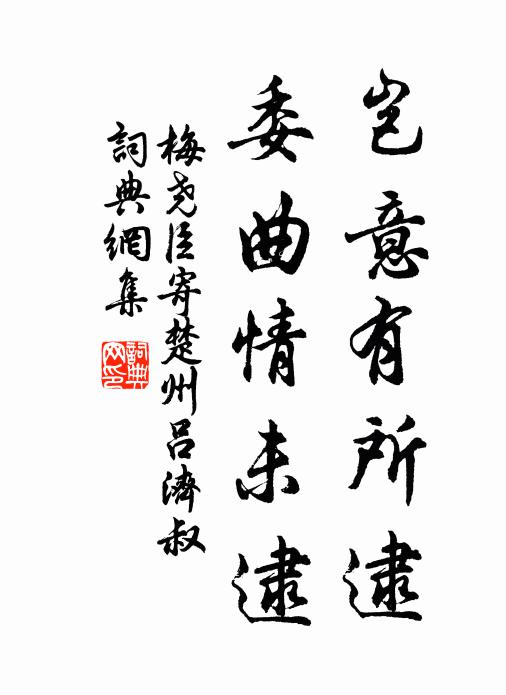 岂意有所逮
委曲情未逮
梅尧臣寄楚州吕濟叔
詞典網集
詞典网印